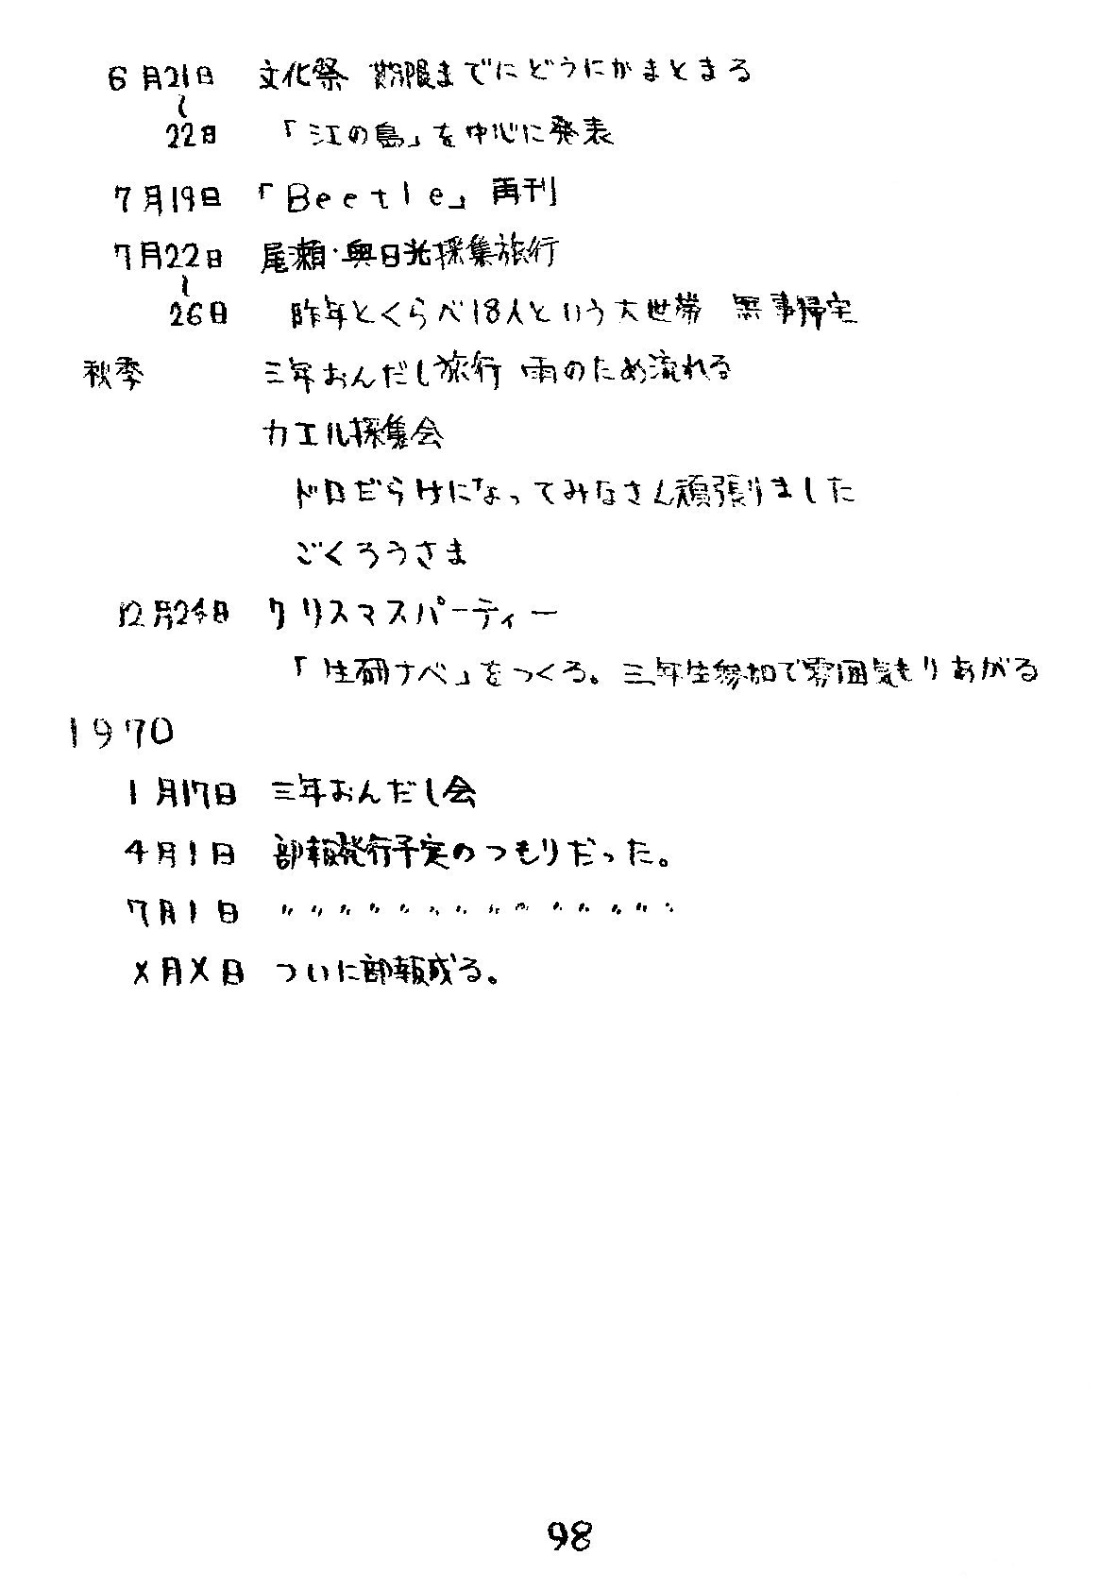 6月21日 文化祭 期限までにどうにかまとまる
〜
22日 「江の島」を中心に発表
7月19日 「Beetle」再刊
7月22日 尾瀬・奥日光採集旅行
〜
26日 昨年とくらべ18人という大世帯 無事帰宅
秋季 三年おんだし旅行 雨のため流れる
カエル採集会
ドロだらけになってみなさん頑張りました
ごくろうさま
12月24日 クリスマスパーティー
「生研ナベ」をつくる。三年生参加で雰囲気もりあがる
1970
1月17日 三年おんだし会
4月1日 部報発行予定のつもりだった。
7月1日 〃〃〃〃〃〃〃〃〃〃〃〃〃〃
X月X日 ついに部報成る。
98